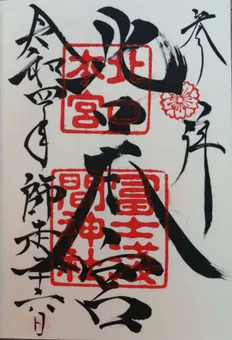 参拝
北口
本宮
北口
本宮
冨士淺
間神社
令和四年 師走二十六日